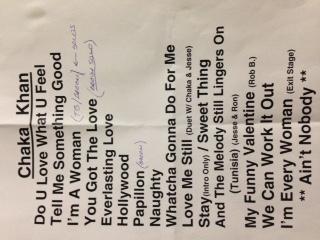 Chaka Khan
Do U Love What U Feel
Tell Me Something Good
I'm A Woman
You Got The Love
Everlasting Love
Hollywood
Papillon
Naughty
Whatcha Gonna Do For Me
Love Me Still (Duet W/ Chaka & Jesse)
Stay (Intro Only) / Sweet Thing
And The Melody Still Lingers On
(Tunisia) (Jesse & Ron)
My Funny Valentine (Rob B.)
We Can Work It Out
I'm Every Woman (Exit Stage)
** Ain't Nobody **